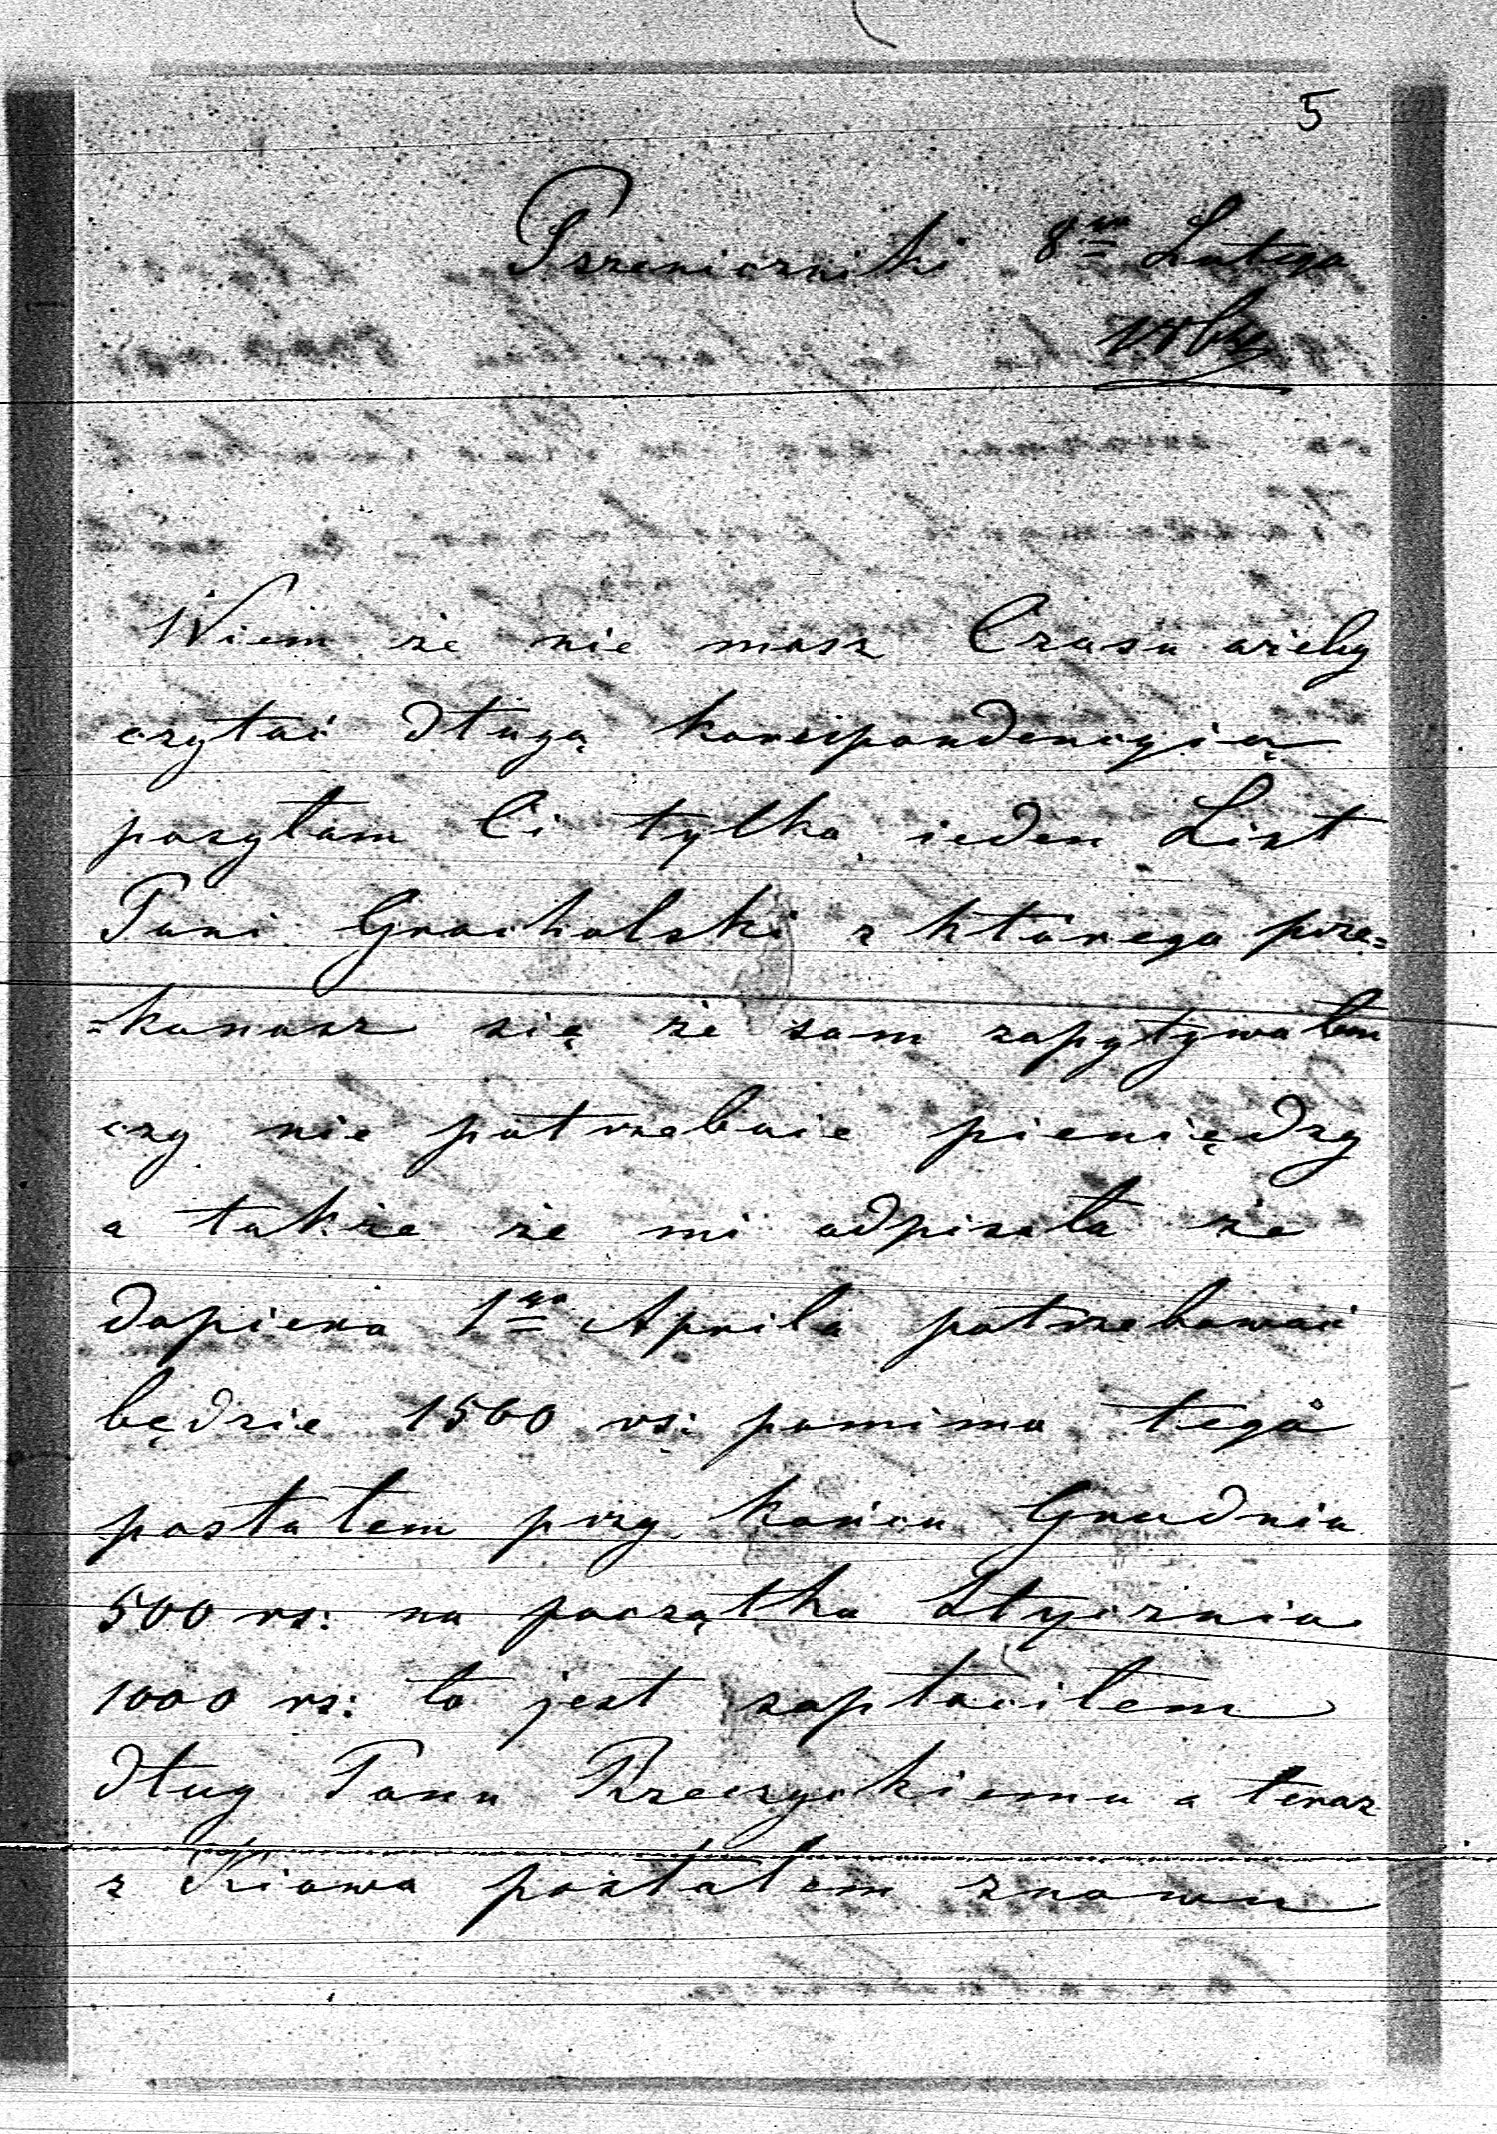 5
Pszeniczniki 8go Lutego
Wiem że nie masz Czasu ażeby
czytać długą korespondencyią
posyłam Ci tylko ieden List
Pani Grocholski z którego prze=
=konasz się że sam zapytywałem
czy nie potrzebuie pieniędzy
a także że mi odpisała że
dopiero 1go Aprila potrzebować
będzie 1500 rs: pomimo tego
posłałem przy końcu Grudnia
500 rs: na początku Stycznia
1000 rs: to jest zapłaciłem
dług Panu Rzeczyckiemu a teraz
z Kiowa posłałem znowu